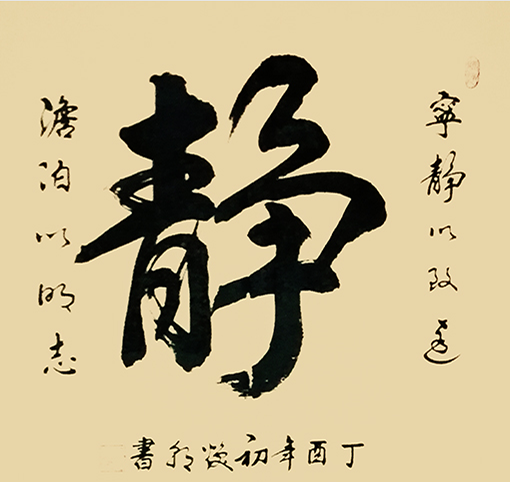 寧静以致遠
静
澹泊以明志
丁酉年初書